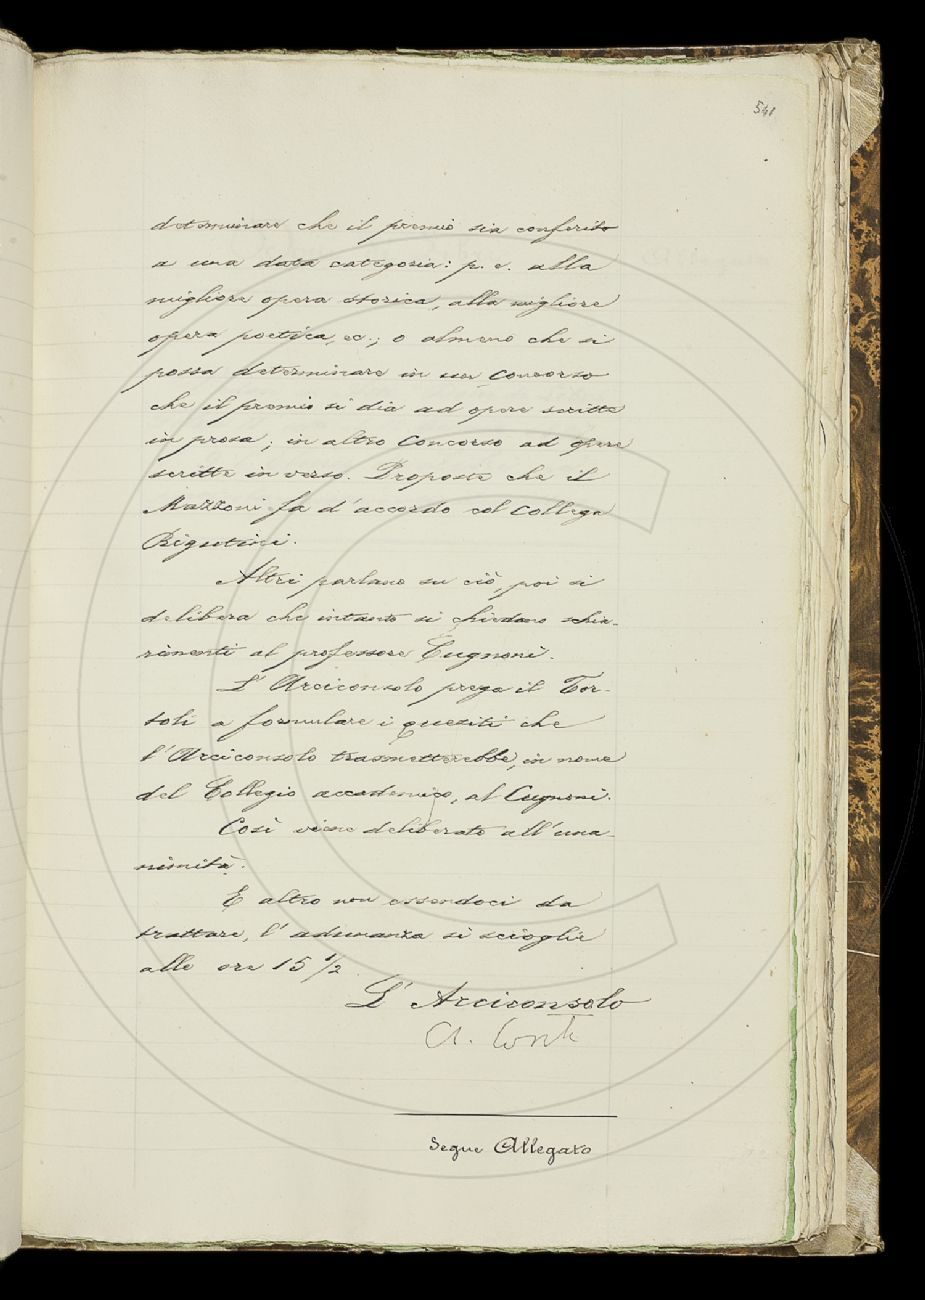 541
determinare che il premio sia conferito
a una data categoria: p. e. alla
migliore opera storica, alla migliore
opera poetica, ec.; o almeno che si
possa determinare in un concorso
che il premio si dia ad opere scritte
in prosa; in altro concorso ad opere
scritte in verso. Proposte che il
Mazzoni fa d'accordo col collega
Rigutini.
Altri parlano su ciò, poi si
delibera che intanto si chiedano schia-
rimenti al professore Cugnoni.
L'Arciconsolo prega il Tor-
toli a formulare i quesiti che
l'Arciconsolo trasmetterebbe, in nome
del Collegio accademico, al Cugnoni.
Così viene deliberato all'una-
nimità.
E altro non essendoci da
trattare, l'adunanza si scioglie
alle ore 15 1/2.
L'Arciconsolo
A. Conti
Segue Allegato